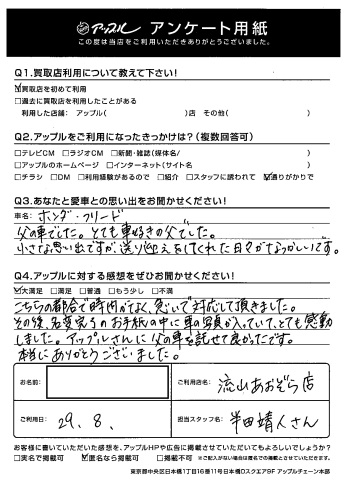 アップル アンケート用紙
この度は当店をご利用いただきありがとうございました。
Q1.買取店利用について教えて下さい!
☑買取店を初めて利用
□過去に買取店を利用したことがある
利用した店舗: アップル( )店 その他( )
Q2.アップルをご利用になったきっかけは?(複数回答可)
□テレビCM □ラジオCM □新聞・雑誌(媒体名/ )
□アップルのホームページ □インターネット(サイト名 )
□チラシ □DM □利用経験があるので □紹介 □スタッフに誘われて ☑通りがかりで
Q3.あなたと愛車との思い出をお聞かせください!
車名: ホンダ・フリード
父の車でした。とても車好きの父でした。
小さな思い出ですが、送り迎えをしてくれた日々がなつかしいです。
Q4.アップルに対する感想をぜひお聞かせください!
☑大満足 □満足 □普通 □もう少し □不満
こちらの都合で時間がなく、急いで対応して頂きました。
その後、名変完了のお手紙の中に車の写真が入っていて、とても感動
しました。アップルさんに父の車を託せて良かったです。
本当にありがとうございました。
お名前:
ご利用店名: 流山あおぞら店
ご利用日: 29. 8.
担当スタッフ名: 半田靖人さん
お客様に書いていただいた感想を、アップルHPや広告に掲載させていただいてもよろしいでしょうか?
□実名で掲載可 ☑匿名なら掲載可 □掲載不可 ※ご記入がない場合は匿名での掲載とさせていただきます。
東京都中央区日本橋1丁目16番11号日本橋Dスクエア9F アップルチェーン本部